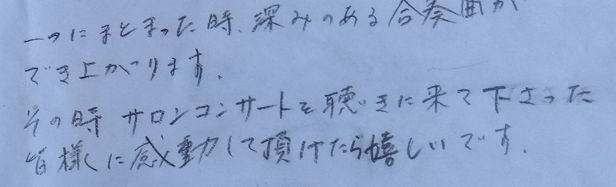 一つにまとまった時、深みのある合奏曲が
でき上がります。
その時サロンコンサートを聴きに来て下さった
皆様に感動して頂けたら嬉しいです。